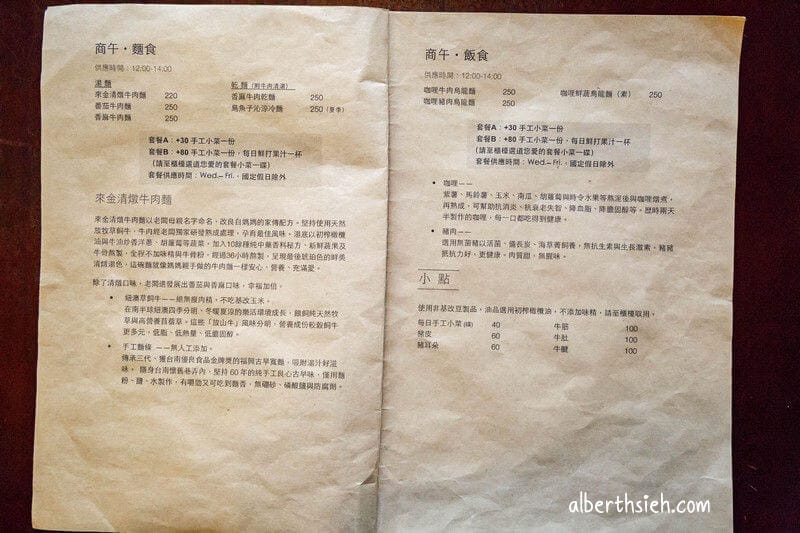 商午・麵食
供應時間：12:00-14:00
湯 麵
來金清燉牛肉麵 220
番茄牛肉麵 250
香麻牛肉麵 250
乾 麵（附牛肉清湯）
香麻牛肉乾麵 250
烏魚子沁涼冷麵 250（夏季）
套餐A：+30 手工小菜一份
套餐B：+80 手工小菜一份，每日鮮打果汁一杯
（請至櫃檯選這您愛的套餐小菜一碟）
套餐供應時間：Wed.– Fri.，國定假日除外
來金清燉牛肉麵
來金清燉牛肉麵以老闆母親名字命名，改良自媽媽的家傳配方。堅持使用天然
放牧草飼牛，牛肉經老闆獨家研發熟成處理，孕育最佳風味。湯底以初榨橄欖
油與牛油炒香洋蔥、胡蘿蔔等蔬菜，加入10餘種純中藥香料秘方、新鮮蔬果及
牛骨熬製，全程不加味精與牛骨粉，經過36小時熬製，呈現最後琥珀色的鮮美
清燉湯頭，這碗麵就像媽媽親手做的牛肉麵一樣安心、營養、充滿愛。
除了清燉口味，老闆還發展出番茄與香麻口味，幸福加倍。
• 紐澳草飼牛——絕無瘦肉精，不吃基改玉米。
在南半球紐澳四季分明、冬暖夏涼的樂活環境成長，餵飼純天然牧
草與高營養苜蓿草。這些「放山牛」風味分明，營養成份較穀飼牛
更多元，低脂、低熱量、低膽固醇。
• 手工麵條 ——無人工添加。
傳承三代、獲台南優良食品金牌獎的福興古早寬麵，吸附湯汁好滋
味。 隱身台南懷舊巷弄內，堅持 60 年的純手工良心古早味，僅用麵
粉、鹽、水製作，有嚼勁又可吃到麵香，無硼砂、磷酸鹽與防腐劑。
商午・飯食
供應時間：12:00-14:00
咖哩牛肉烏龍麵 250
咖哩豬肉烏龍麵 250
咖哩鮮蔬烏龍麵（素） 250
套餐A：+30 手工小菜一份
套餐B：+80 手工小菜一份，每日鮮打果汁一杯
（請至櫃檯選這您愛的套餐小菜一碟）
套餐供應時間：Wed.– Fri.，國定假日除外
• 咖哩——
紫薯、馬鈴薯、玉米、南瓜、胡蘿蔔與時令水果等熬泥後與咖哩燉煮，
再熟成，可幫助抗消炎、抗衰老失智、降血脂、降膽固醇等。歷時兩天
半製作的咖哩，每一口都吃得到健康。
• 豬肉——
選用無菌豬以活菌、備長炭、海草膏飼養，無抗生素與生長激素，豬豬
抵抗力好，更健康。肉質甜，無腥味。
小 點
使用非基改豆製品，油品選用初榨橄欖油，不添加味精，請至櫃檯取用。
每日手工小菜(碟) 40
豬皮 60
豬耳朵 60
牛筋 100
牛肚 100
牛腱 100
alberthsieh.com